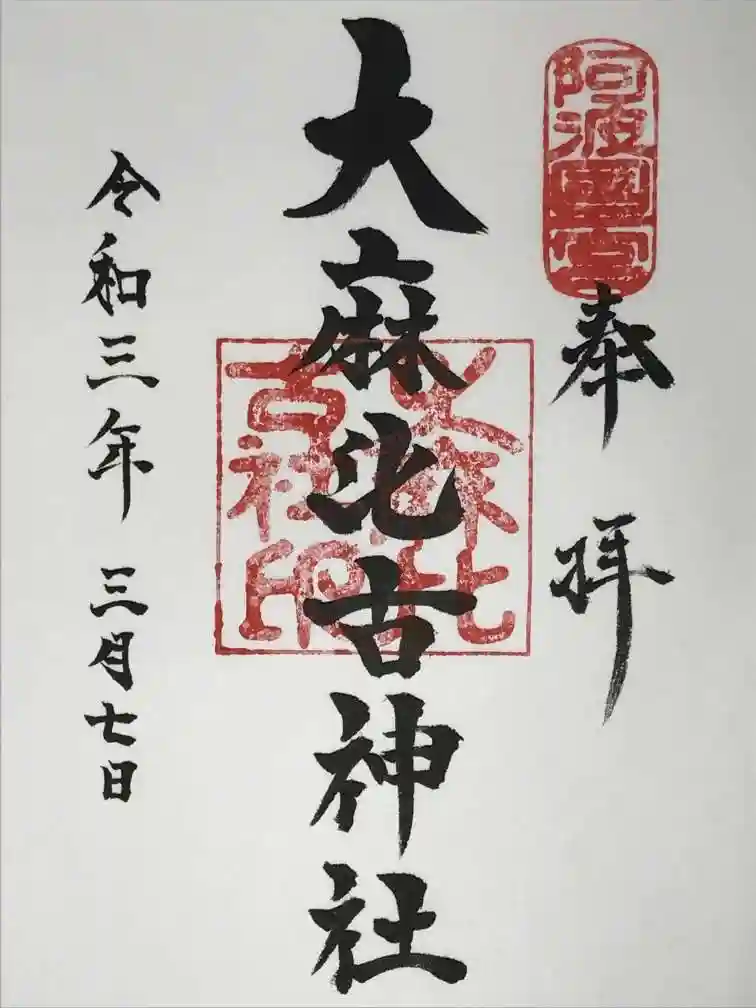 阿波國一宮
奉拝
大麻比古神社
大麻比
古社印
令和三年 三月七日